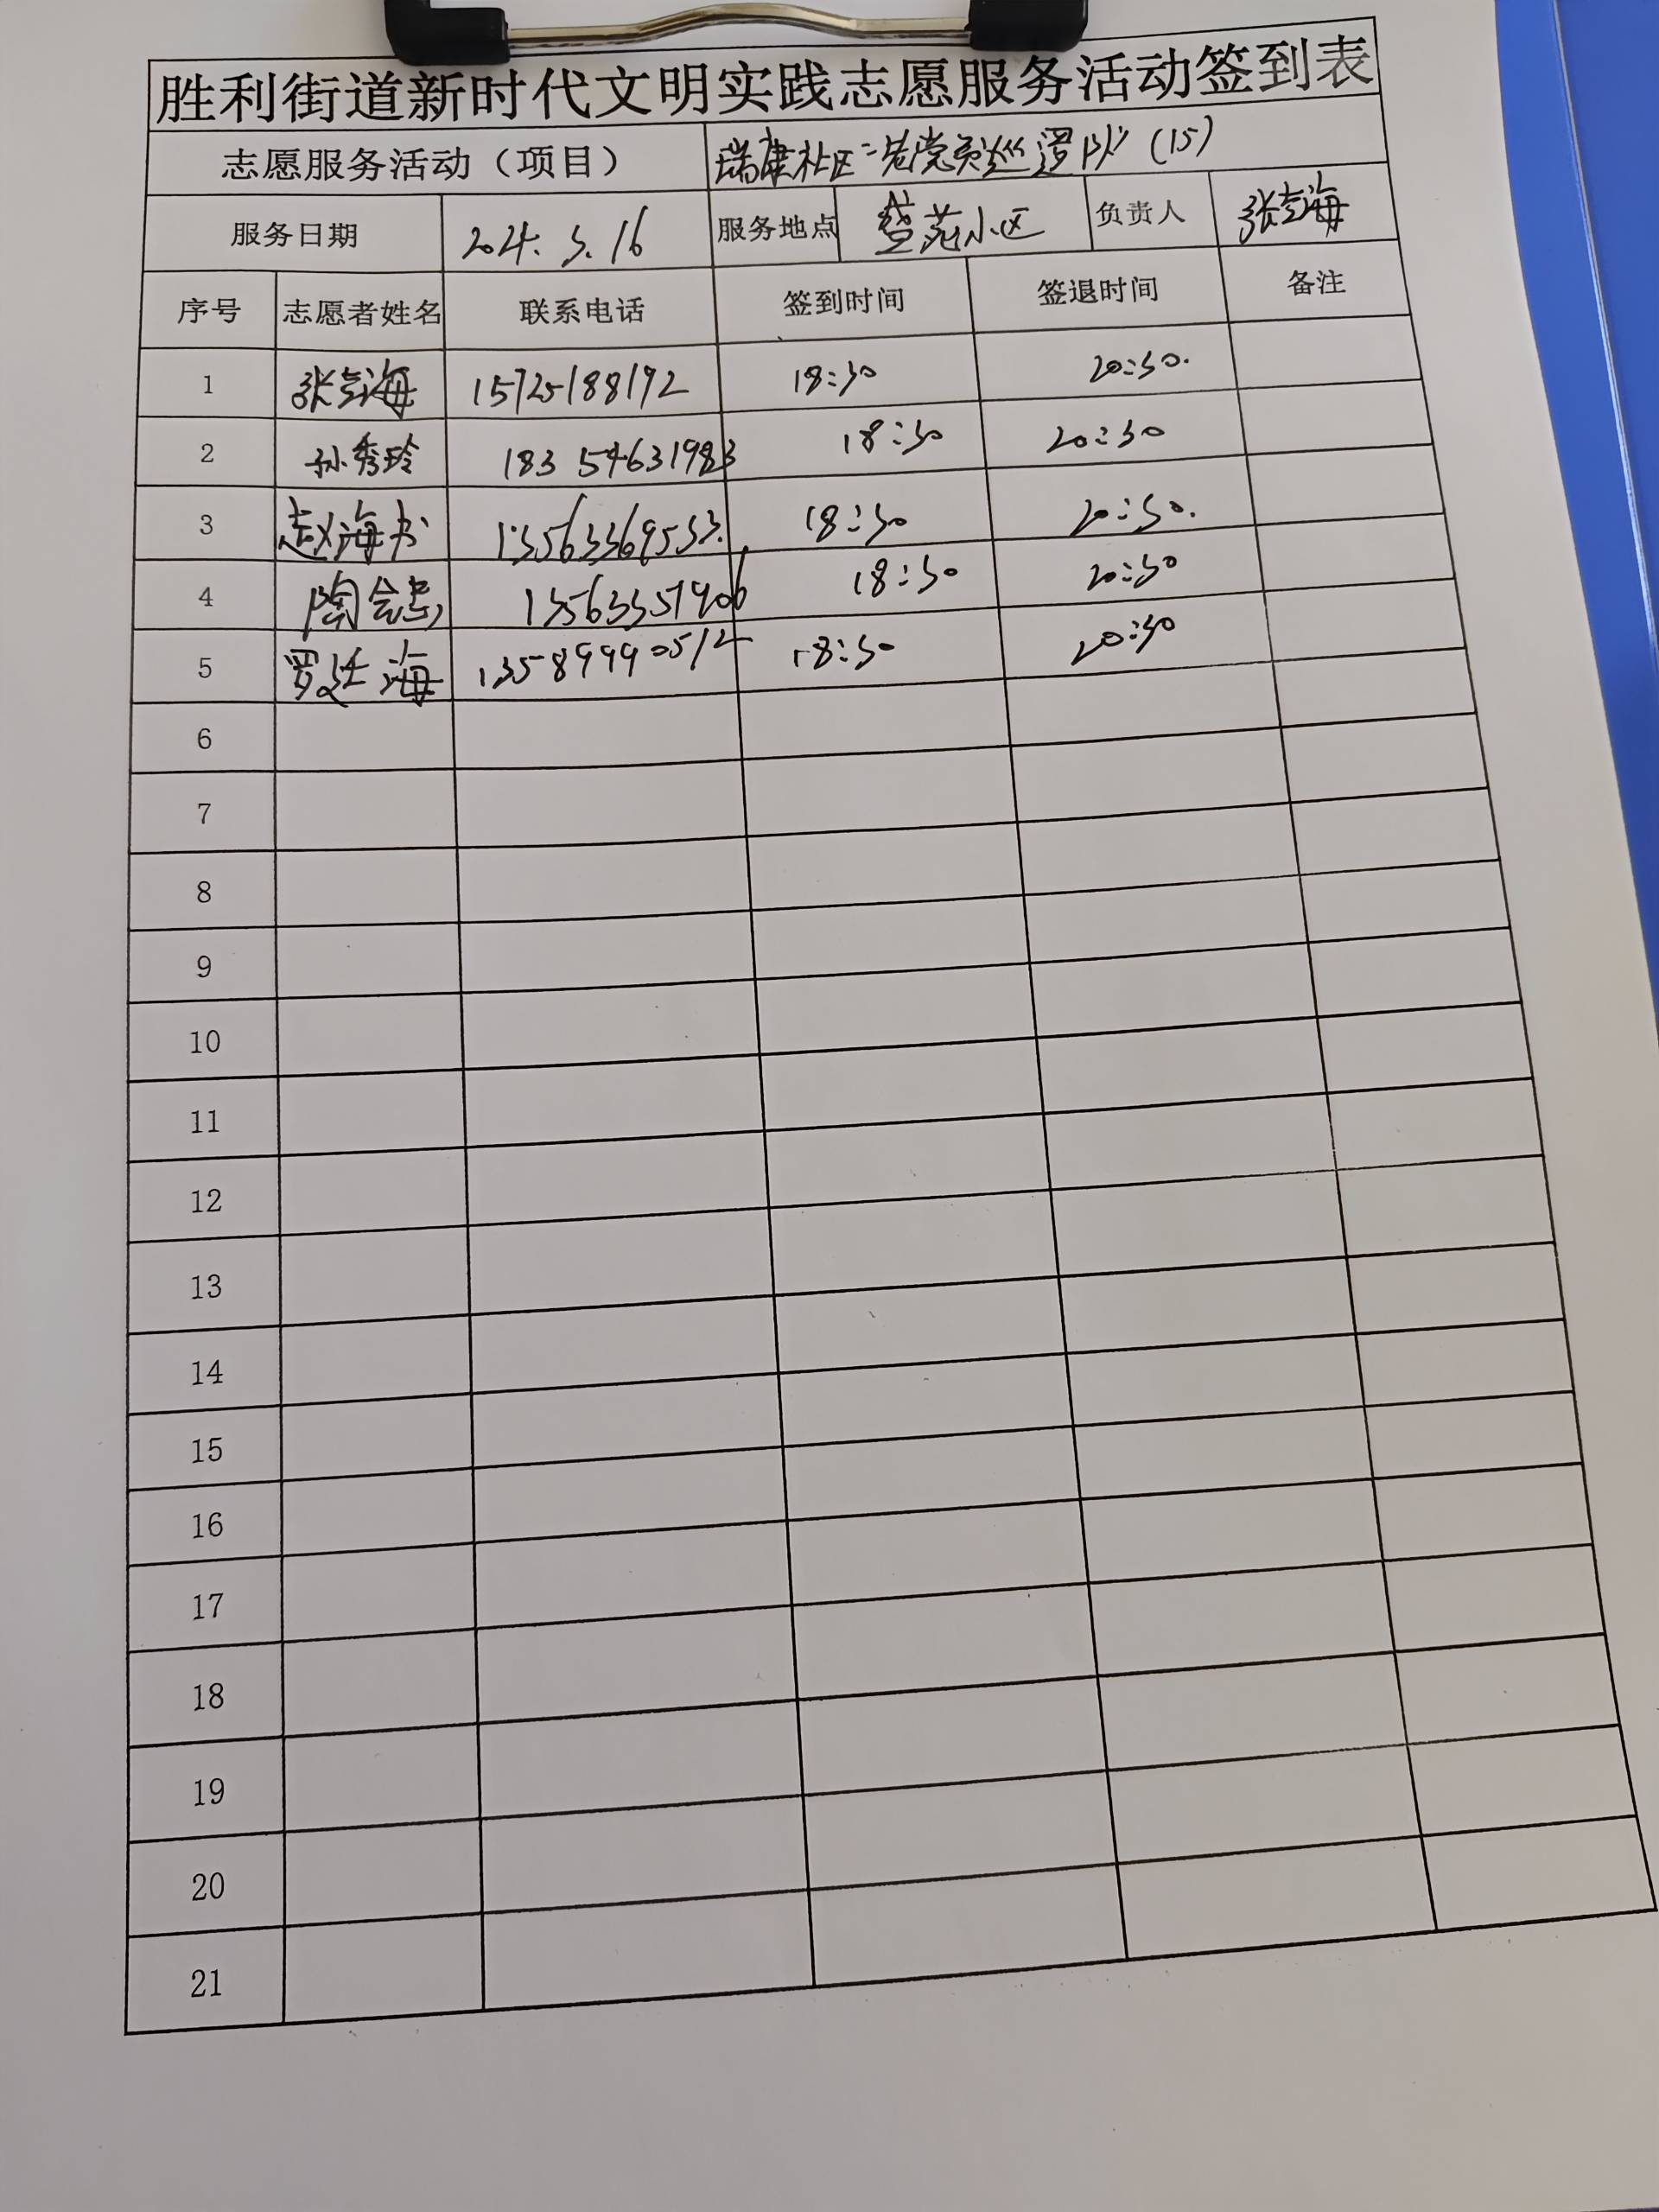 胜利街道新时代文明实践志愿服务活动签到表
志愿服务活动（项目） 瑞康社区二老党员巡逻队(15)
服务日期 2024.3.16 服务地点 苑小区 负责人 张志海
序号 志愿者姓名 联系电话 签到时间 签退时间 备注
1 张志海 15725188192 18:30 20:30.
2 孙秀玲 18354631983 18:30 20:30
3 赵海书 13563369533. 18:30 20:30.
4 陶会忠 13563357906 18:30 20:30
5 罗延海 13589990512 18:30 20:30
6
7
8
9
10
11
12
13
14
15
16
17
18
19
20
21